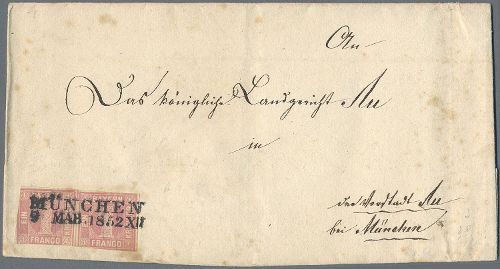 An
Das königliche Landgericht Au
in
der Vorstadt Au
bei München
MÜNCHEN
9 MAR. 1852 XII
FRANCO FRANCO